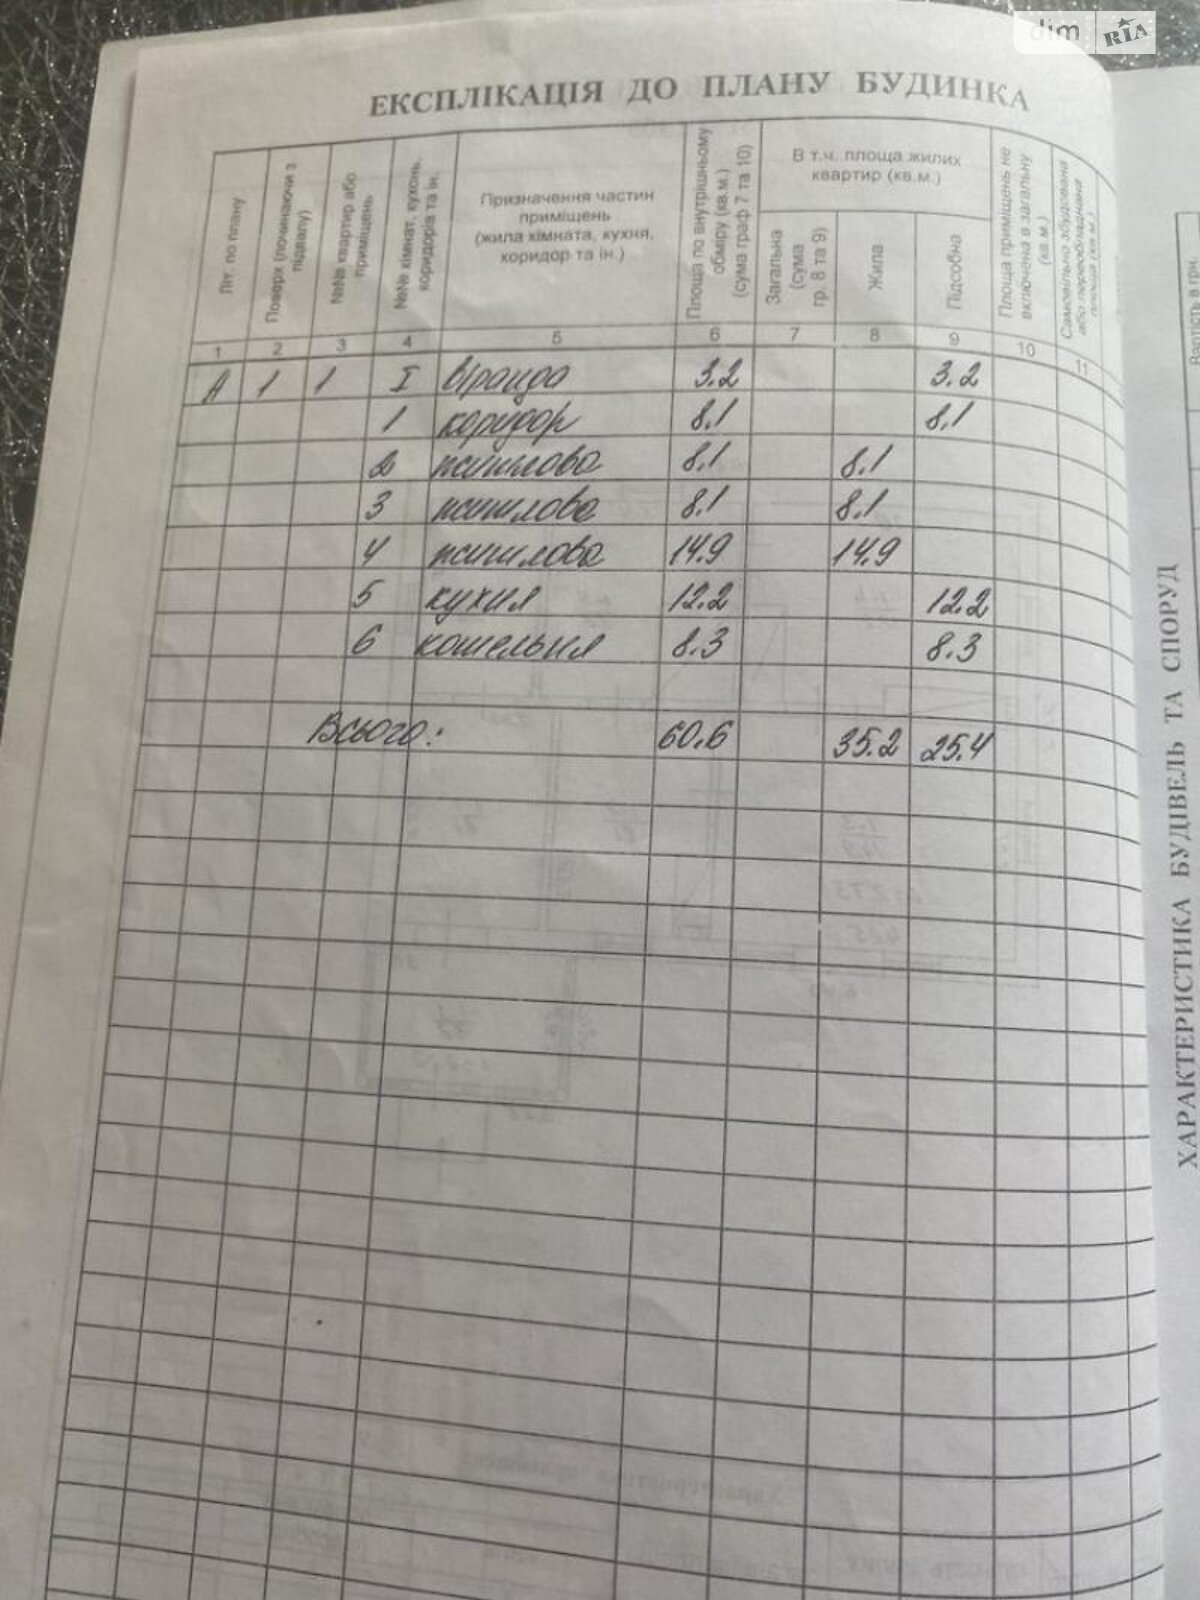 dim RIA
ЕКСПЛІКАЦІЯ ДО ПЛАНУ БУДИНКА
Літ. по плану
Поверх (починаючи з підвалу)
№№ квартир або приміщень
№№ кімнат, кухонь, коридорів та ін.
Призначення частин приміщень (жила кімната, кухня, коридор та ін.)
Площа по внутрішньому обміру (кв.м.) (сума граф 7 та 10)
В т.ч. площа жилих квартир (кв.м.)
Загальна (сума гр. 8 та 9)
Жила
Підсобна
Площа приміщень не включена в загальну (кв.м.)
Самовільно збудована або переобладнана площа (кв.м.)
1 2 3 4 5 6 7 8 9 10 11
А 1 1 I віранда 3.2 3.2
1 коридор 8.1 8.1
2 житлова 8.1 8.1
3 житлова 8.1 8.1
4 житлова 14.9 14.9
5 кухня 12.2 12.2
6 котельня 8.3 8.3
Всього: 60.6 35.2 25.4
ХАРАКТЕРИСТИКА БУДІВЕЛЬ ТА СПОРУД
Вартість в грн.